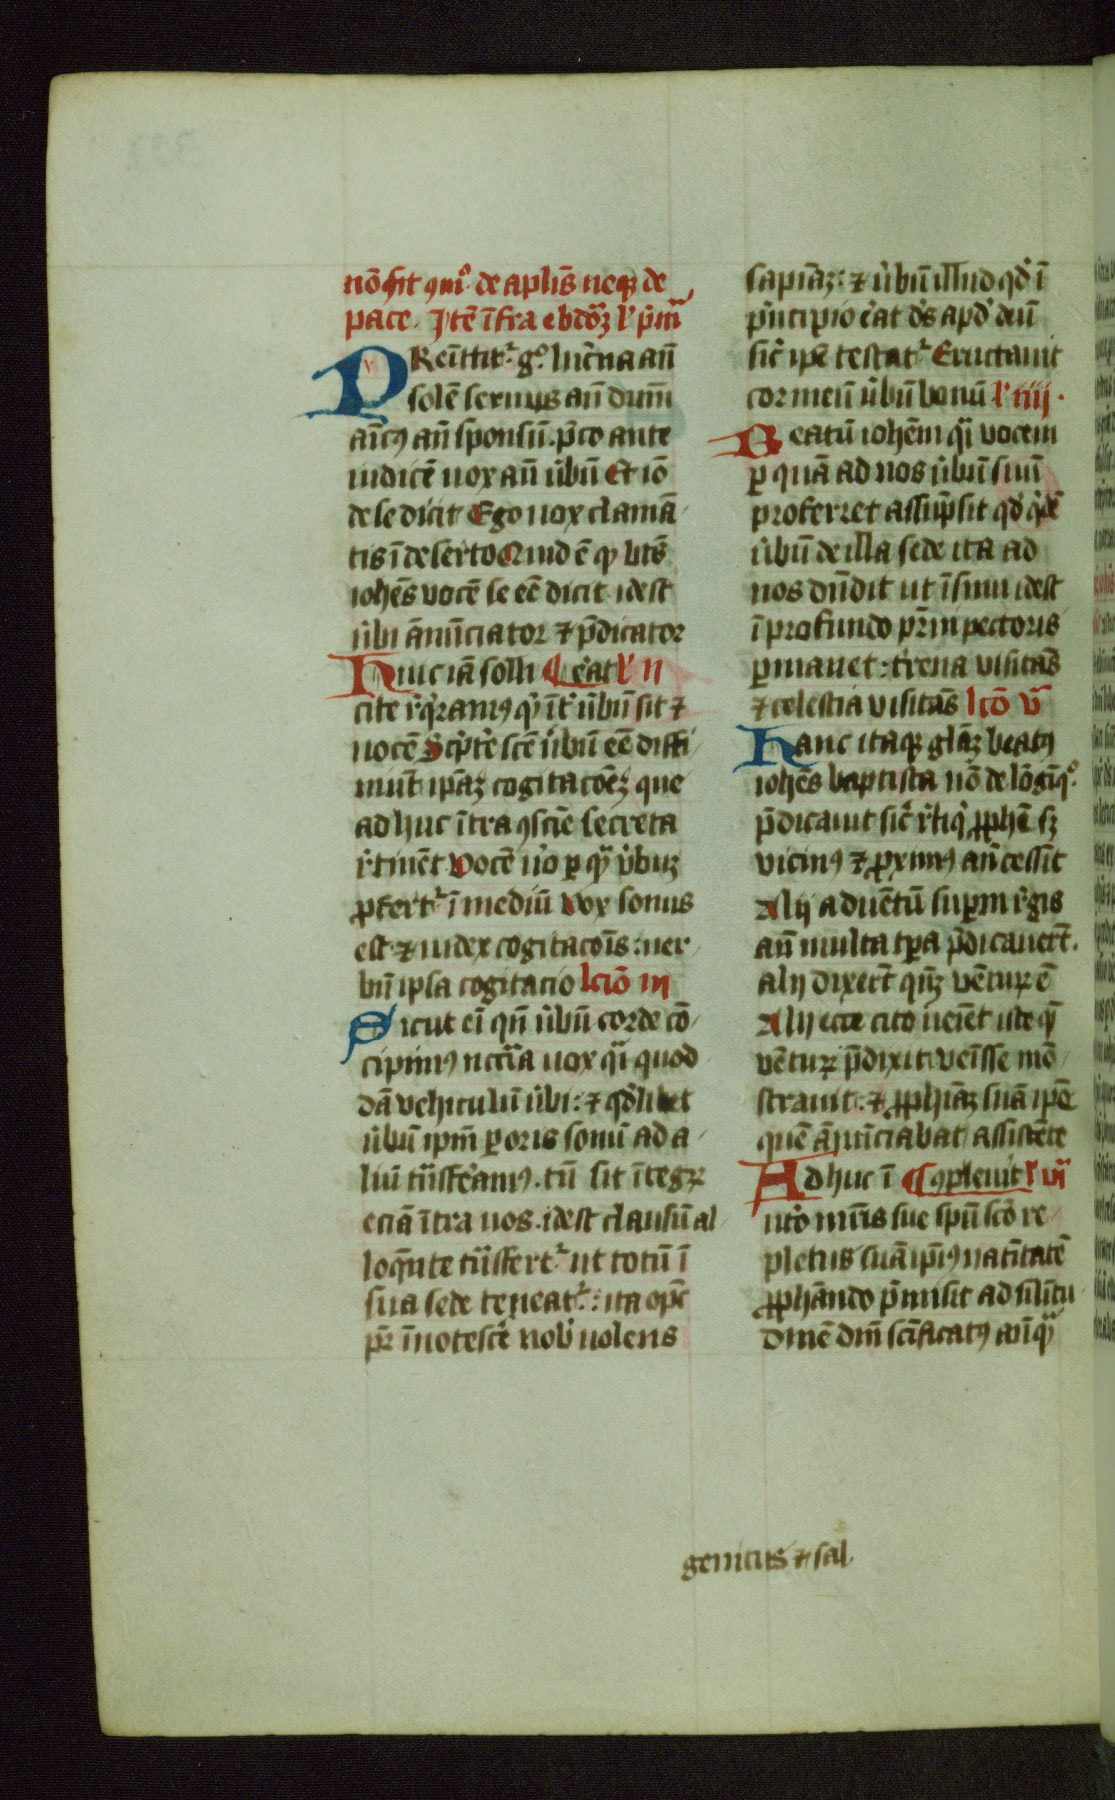 nō fit ɔmꝰ de aplīs neqꝫ de
pace. Itē īfra ebdōꝫ lꝰ pīm
PRemittitᷣ gͦ lucna an̄
solē sermus an̄ dnm̄
amicꝰ an̄ sponsū. p̄co ante
iudicē uox an̄ ūbū Et iō
de se dicit Ego uox clamā
tis ī deserto Quid ē qꝫ bt̄s
iohēs vocē se eē dicit idest
ūbi ānūciator ⁊ p̄dicator
Huic iā solli Erat lꝰ ii
cite rͥqͥramꝰ qͥ īt ūbū sit ⁊
uocē Sc̄pte scē ūbū eē diffi
niūt ip̄aꝫ cogitacōeꝫ que
ad huc ītra ꝯsciē secreta
rͥtinēt Vocē u̇o ꝑ qᷓ ūbuꝫ
ꝓfertᷣ ī mediū Vox sonus
est ⁊ iudex cogitacoīs: uer
bū ipsa cogitacio lcīo iii
Sicut ei qn̄ ūbū corde cō
cipimꝰ nccīa uox qᷓi quod
dā vehiculū ūbi: ⁊ qd̄libet
ūbū ipm̄ ꝑ oris sonū ad a
liū tn̄sferamꝰ. tn̄ sit ītegꝝ
eciā ītra nos. idest clausū al
loqn̄te tn̄sfertᷣ ut totū ī
sua sede teneatᷣ: ita opc
pr̄ īnotescē nobꝰ uolens
sapīaꝫ: ⁊ ūbū illud qd̄ ī
pͥncipio eͬat dꝰs apdͥ deū
sicͥ ip̄e testatᷣ Eructauit
cor meū ūbū bonū lꝰ iiii.
Beatū iohēm qᷓi vocem
ꝑ quā ad nos ūbū suū
proferret assūpsit qd̄ qͥdē
ūbū de illa sede ita ad
nos dn̄dit ut ī sinu idest
ī profundo pr̄ni pectoris
ꝑmanet: trena visitās
⁊ celestia visitās lcō v
Hanc itaqꝫ glāꝫ beatꝰ
iohēs baptista nō de lōgīqͦ
p̄dicauit sicͥ rͥliqͥ ꝓphē sꝫ
vicinꝰ ⁊ ꝓximꝰ an̄cessit
Alij aduētū suꝑni rͥgis
an̄ multa tꝑa p̄dicauert̄.
alij dixert̄ qn̄ꝫ vēturꝝ ē
Alij ecce cito ueīet iste qꝫ
vēturꝝ p̄dixit. veīsse mō
strauit: ⁊ ꝓphīaꝫ suā ipē
quē ānūciabat assistēte
Ad huc ī Ꝯpleuit lꝰ vi
utͦo mr̄is sue spū scō re
pletus suā ip̄iꝰ natīitatē
ꝓphādo p̄misit ad silītu
dinē dn̄i scīficatꝰ an̄qᷓ
genitus ⁊ sal.